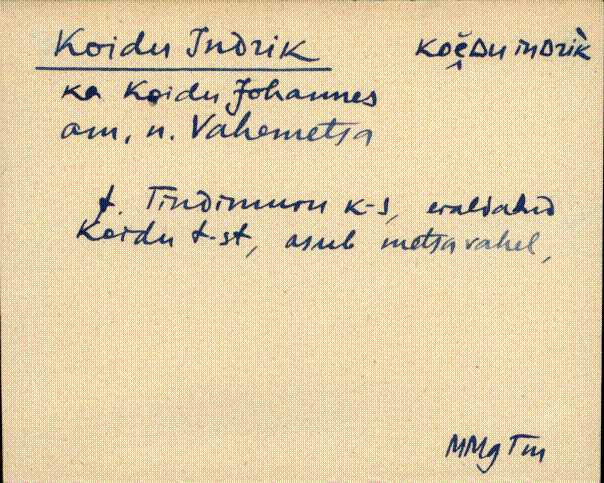 Koidu Indrik koḙ̆Du inDrìk
ka Koidu Johannes
am, n. Vahemetsa
t. Tindimurru k-s, eraldatud
Koidu t-st, asub metsa vahel,
MMg Tm